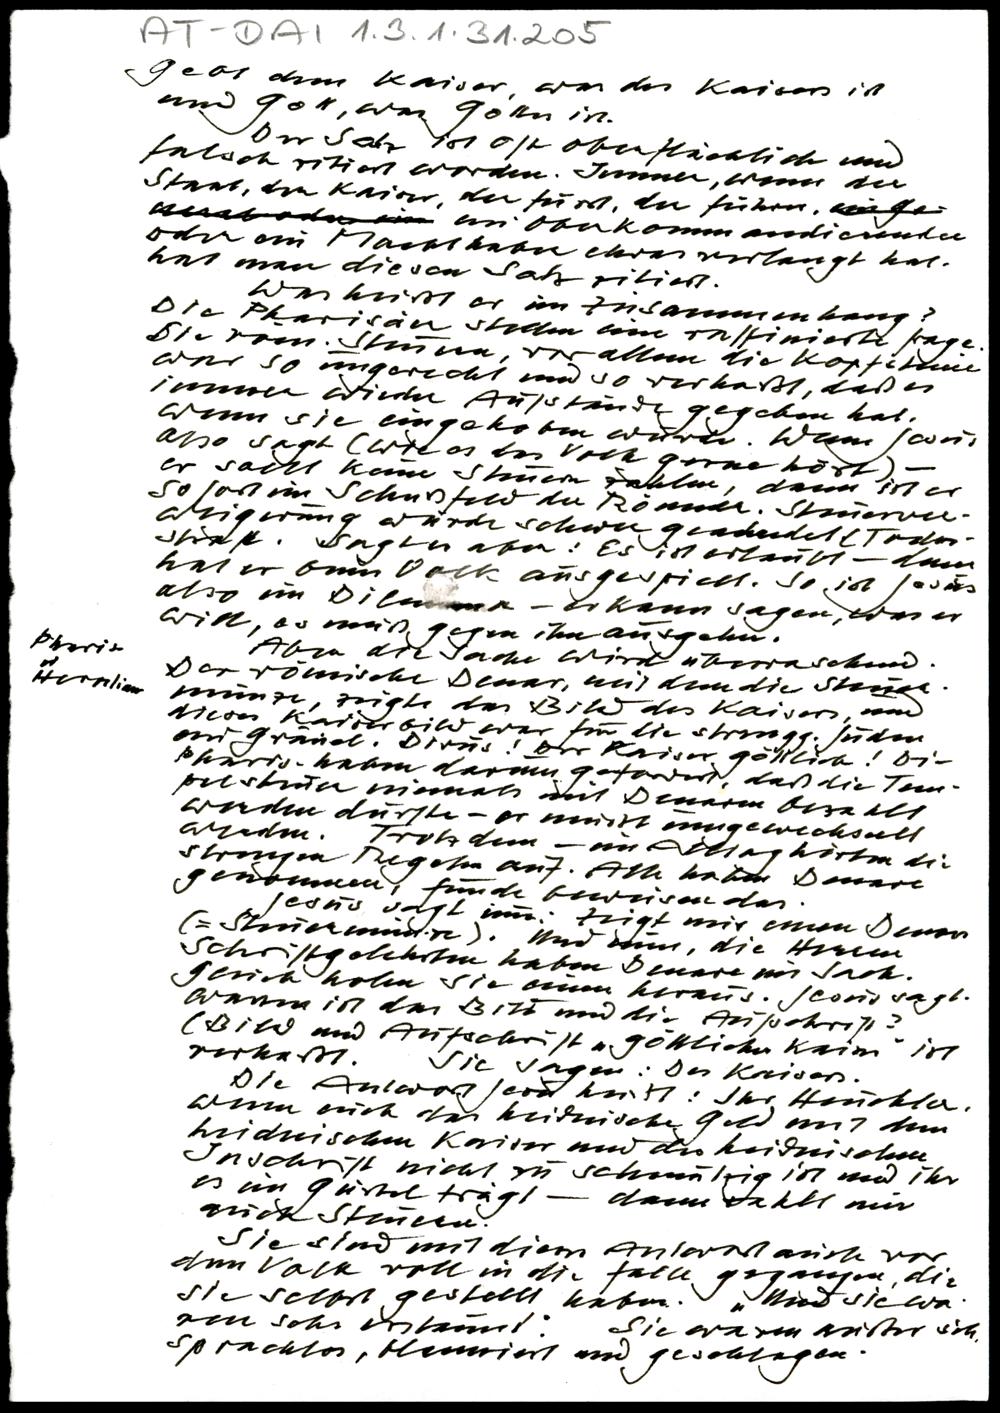 AT-DAI 1.3.1.31.205
Gebt dem Kaiser, was des Kaisers ist
und Gott, was Gottes ist.
Der Satz ist oft oberflächlich und
falsch zitiert worden. Immer, wenn der
Staat, der Kaiser, der Fürst, der Führer,
ein Oberkommandierender
oder ein Machthaber etwas verlangt hat.
hat man diesen Satz zitiert.
Was heißt er im Zusammenhang?
Die Pharisäer stellen eine raffinierte Frage.
Die röm. Steuern, vor allem die Kopfsteuer
war so ungerecht und so verhaßt, daß es
immer wieder Aufstände gegeben hat,
wenn sie eingehoben wurde. Wenn Jesus
also sagt (wie es das Volk gerne hört) –
er soll keine Steuern zahlen, dann ist er
sofort im Schußfeld der Römer. Steuerver-
weigerung wurde schwer geahndet (Todes-
strafe. Sagt er aber: Es ist erlaubt – dann
hat er beim Volk ausgespielt. So ist Jesus
also im Dilemma – er kann sagen, was er
will, es muß gegen ihn ausgehen.
Pharis.
Herodianer
Aber die Sache wird überraschend.
Der römische Denar, mit dem die Steuer-
münze, zeigte das Bild des Kaisers, und
dieses Kaiserbild war für die strengg. Juden
ein Gräuel. Divus! Der Kaiser göttlich! Di-
Pharis. haben darum gefordert, daß die Tem-
pelsteuer niemals mit Denaren bezahlt
werden durfte – es mußte umgewechselt
werden. Trotzdem – im Alltag hörten die
strengen Regeln auf. Alle haben Denare
genommen, Funde beweisen das.
Jesus sagt nun: Zeigt mir einen Denar
(= Steuermünze). Und nun, die Herren
Schriftgelehrten haben Denare im Sack.
Gleich holen sie einen heraus. Jesus sagt.
Wessen ist das Bild und die Aufschrift?
(Bild und Aufschrift „göttlicher Kaiser" ist
verhaßt. Sie sagen: Des Kaisers.
Die Antwort Jesu heißt: Ihr Heuchler,
wenn euch das heidnische Geld mit dem
heidnischen Kaiser und der heidnischen
Inschrift nicht zu schmutzig ist und ihr
es im Gürtel trägt – dann zahlt nur
auch Steuern.
Sie sind mit dieser Antwort auch vor
dem Volk voll in die Falle gegangen, die
sie selbst gestellt haben. „Und sie wa-
ren sehr erstaunt". Sie waren außer sich,
sprachlos, blamiert und geschlagen.